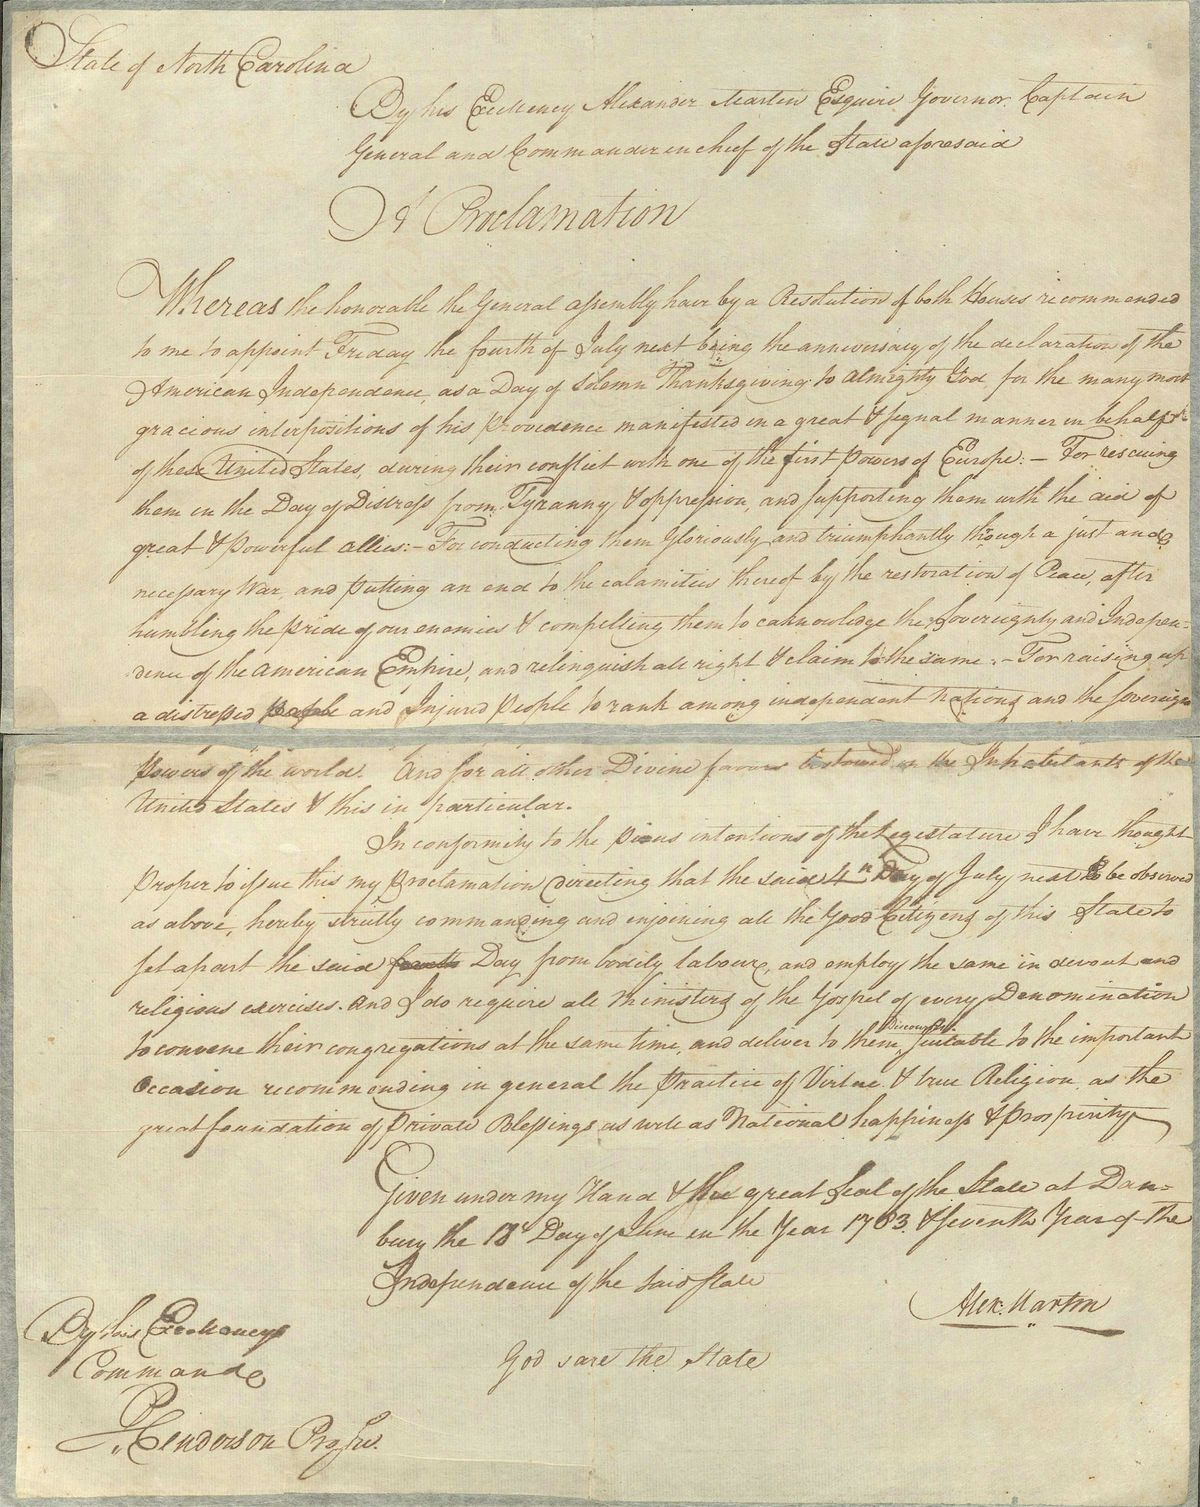 State of North Carolina
By his Excellency Alexander Martin Esquire Governor Captain
General and Commander in chief of the State aforesaid
A Proclamation
Whereas the honorable the General assembly have by a Resolution of both Houses recommended
to me to appoint Friday the fourth of July next being the anniversary of the declaration of the
American Independence, as a Day of Solemn Thanksgiving to almighty God, for the many most
gracious interpositions of his Providence manifested in a great & signal manner in behalf
of these United States, during their conflict with one of the first Powers of Europe: — For rescuing
them in the Day of Distress from Tyranny & oppression, and supporting them with the aid of
great & powerful allies: — For conducting them Gloriously and triumphantly through a just and
necessary War, and putting an end to the calamities thereof by the restoration of Peace, after
humbling the pride of our enemies & compelling them to acknowledge the Sovereignty and Indepen-
dence of the American Empire, and relinquish all right & claim to the same: — For raising up
a distressed people and Injured People to rank among independent Nations and the Sovereign
Powers of the world. And for all other Divine favors bestowed on the Inhabitants of the
United States & this in particular.
In conformity to the Pious intentions of the Legislature I have thought
Proper to issue this my Proclamation directing that the said 4th Day of July next to be observed
as above, hereby strictly commanding and enjoining all the Good Citizens of this State to
set apart the said fourth Day from bodily labour, and employ the same in devout and
religious exercises. And I do require all Ministers of the Gospel of every Denomination
to convene their congregations at the same time, and deliver to them Discourses suitable to the important
Occasion recommending in general the Practice of Virtue & true Religion as the
great foundation of private Blessings as well as National happiness & prosperity
Given under my Hand & the great Seal of the State at Dan-
bury the 18th Day of June in the Year 1783 & seventh Year of the
Independence of the said State
Alex. Martin
By his Excellency's
Command
God save the State
P. Henderson Pro Sec.